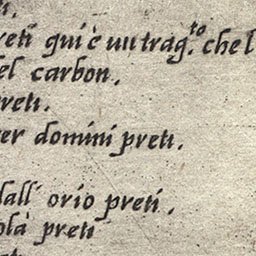 preti qui è un trag.to che l
el carbon.
preti.
er domini preti.
dall' orio preti.
ola preti